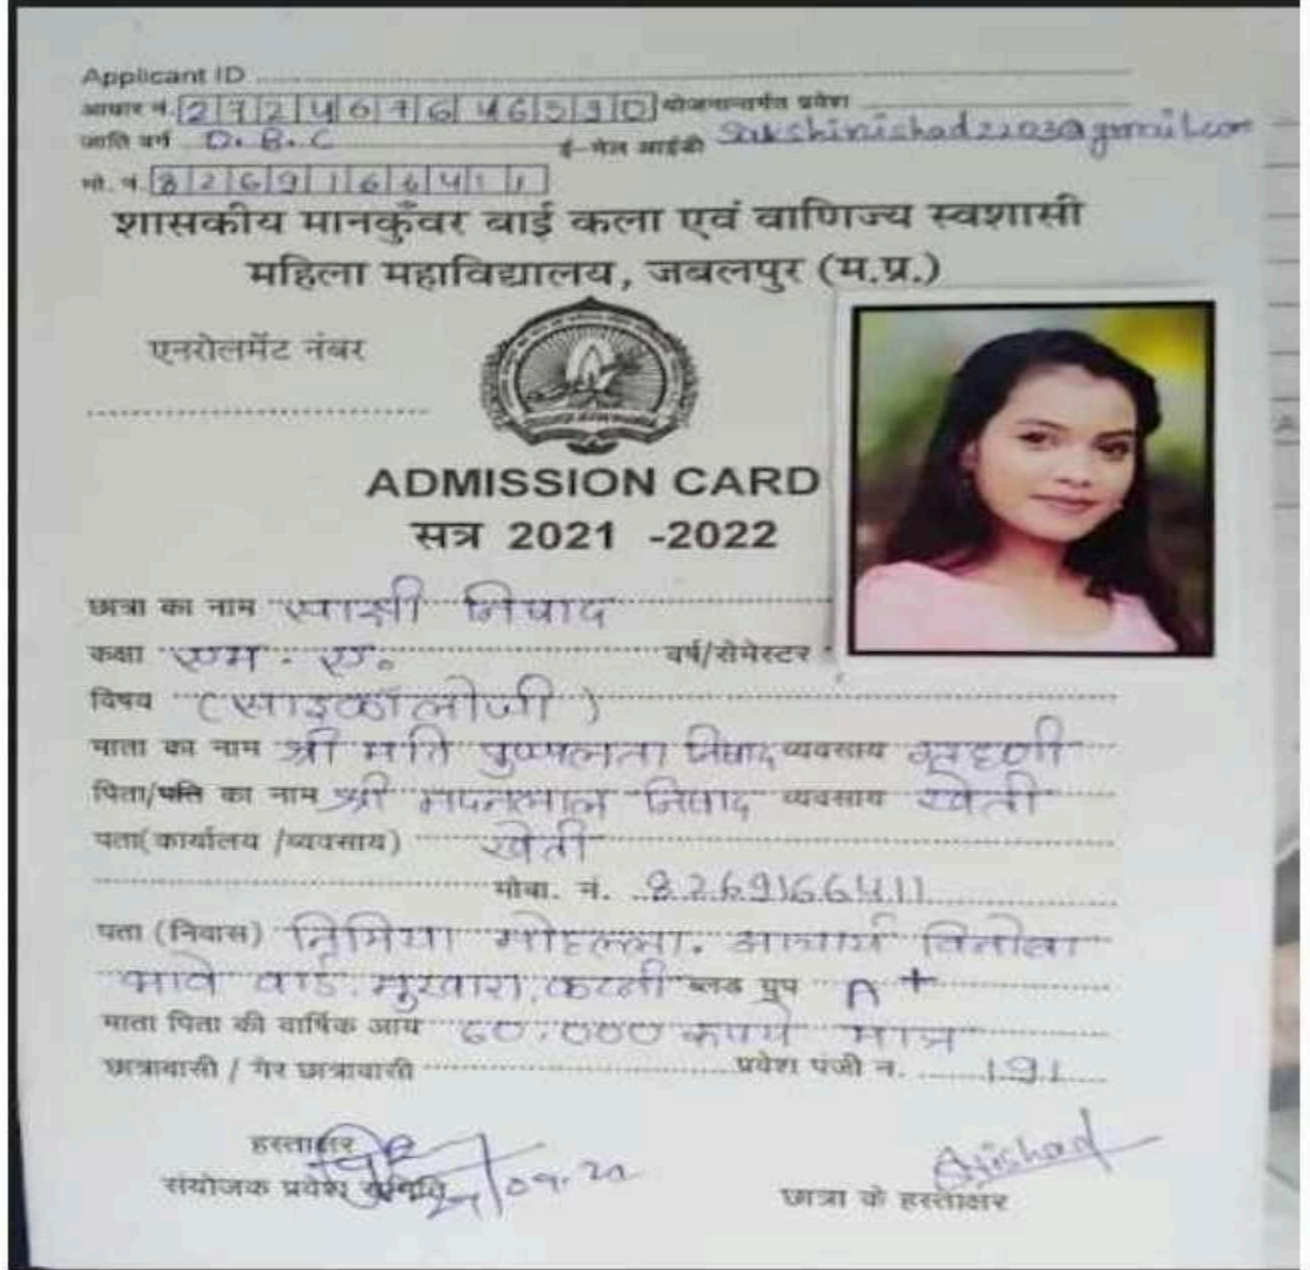 Applicant ID
आधार नं. योजनान्तर्गत प्रवेश
जाति वर्ग O.B.C ई-मेल आईडी sakshinishad2203@gmail.com
मो. नं. 8269166411
शासकीय मानकुँवर बाई कला एवं वाणिज्य स्वशासी
महिला महाविद्यालय, जबलपुर (म.प्र.)
एनरोलमेंट नंबर
ADMISSION CARD
सत्र 2021 -2022
छात्रा का नाम साक्षी निषाद
कक्षा एम. ए. वर्ष/सेमेस्टर
विषय (साइकॉलोजी)
माता का नाम श्री मति पुष्पलता निषाद व्यवसाय गृहणी
पिता/पति का नाम श्री निषाद व्यवसाय खेती
पता(कार्यालय /व्यवसाय) खेती
मोबा. नं. 8269166411
पता (निवास) तिमिया मोहल्ला. आचार्य विनोवा
भावे वार्ड. मुड़वारा, कटनी ब्लड ग्रुप A+
माता पिता की वार्षिक आय रूपये मात्र
छात्रावासी / गैर छात्रावासी प्रवेश पंजी न. 191
हस्ताक्षर
संयोजक प्रवेश समिति
Snishad
छात्रा के हस्ताक्षर